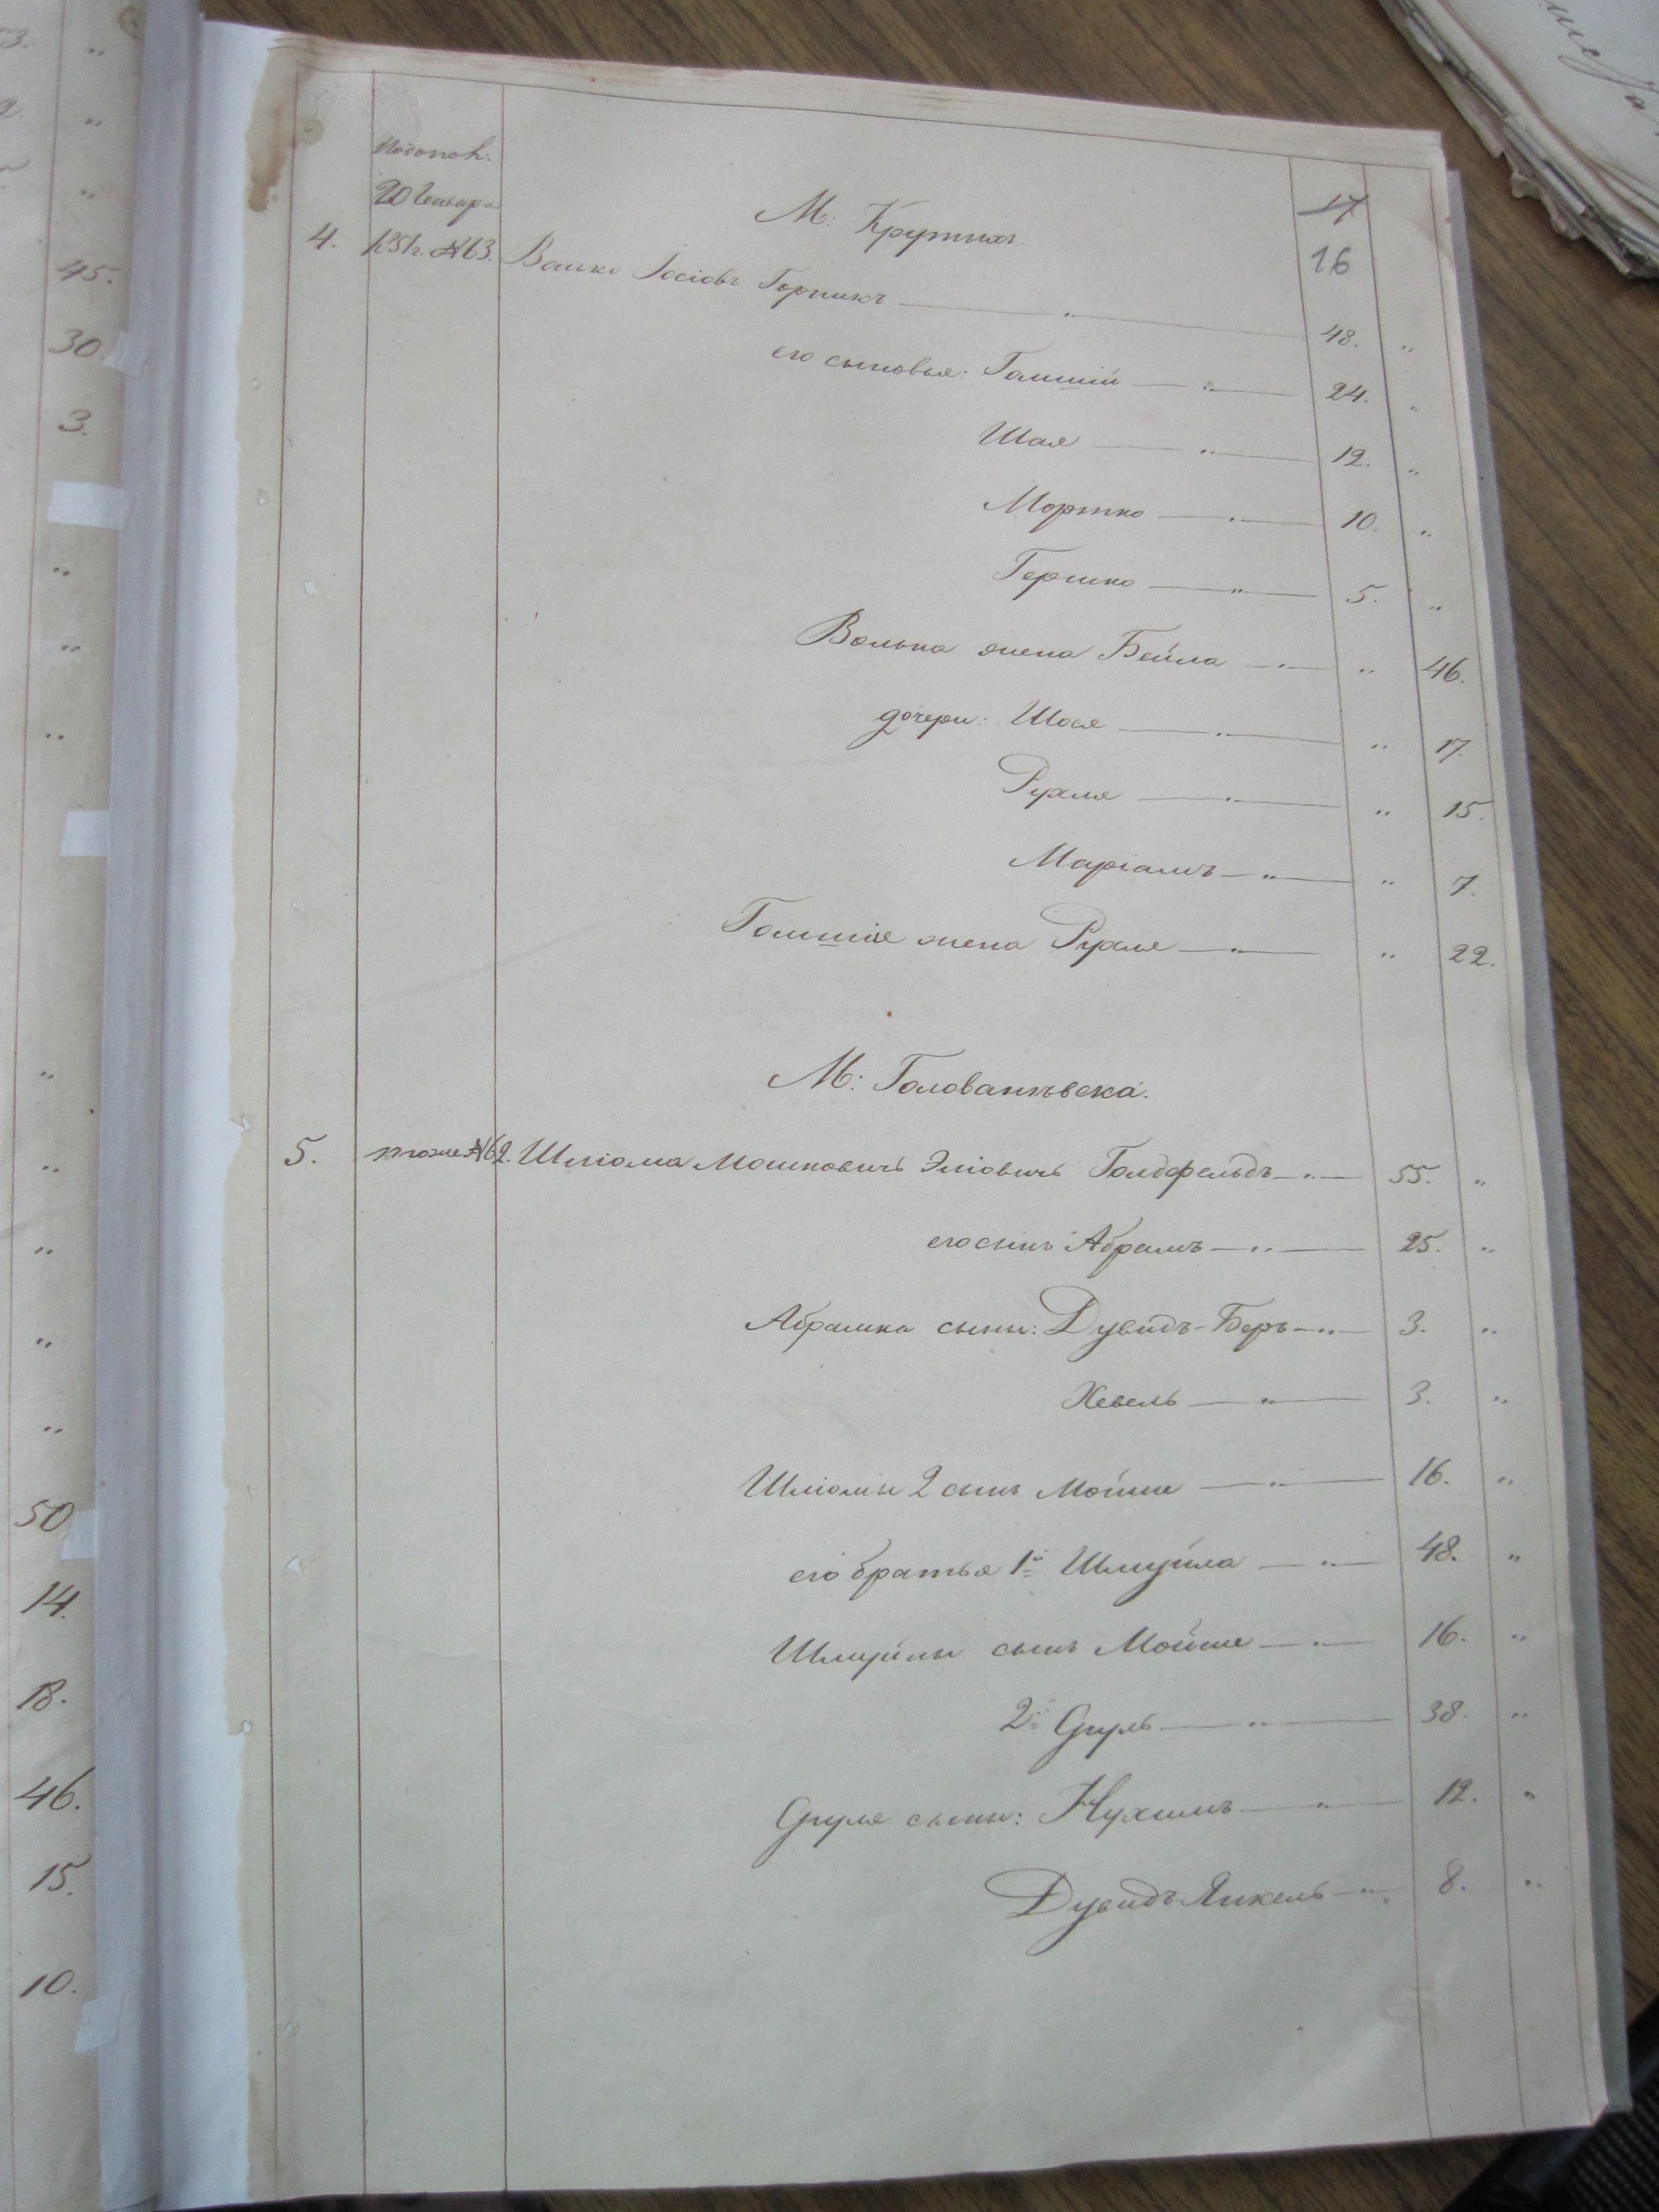 3.
45.
30.
3.
50
14.
18.
46.
15.
10.
17
16
20 Генвар
М: Крутыхъ.
4. 1851г. №63. Волько Іосіовъ Горникъ — " — 48. "
его сыновья: Гошшій — " — 24. "
Шая — " — 12. "
Мортко — " — 10. "
Гершко — " — 5. "
Волька жена Бейла — " — " 46.
дочери: Шося — " — " 17.
Рухля — " — " 15.
Маріамъ — " — " 7.
Гошшія жена Рухля — " — " 22.
М: Голованѣвска.
5. тоже №62. Шліома Мошковичь Эліовичь Голдфельдъ — " — 55. "
его сынъ Абрамъ — " — 25. "
Абрамка сыны: Дувидъ-Беръ — " — 3. "
Хевель — " — 3. "
Шліомы 2 сынъ Мойше — " — 16. "
его братья 1й Шмуйла — " — 48. "
Шмуйлы сынъ Мойше — " — 16. "
2й Сруль — " — 38. "
Сруля сыны: Нухимъ — " — 12. "
Дувидъ Янкель — " — 8. "